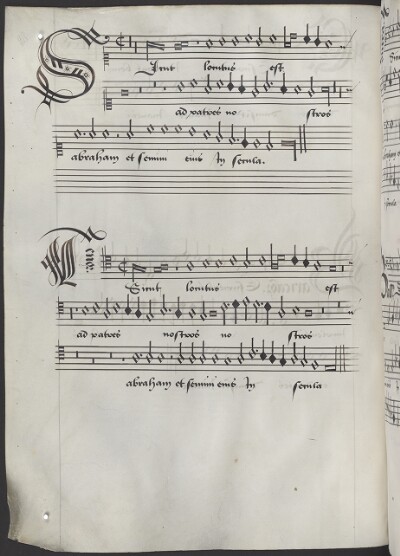 Sicut locutus est
ad patres no stros
abraham et semini eius In secula.
Tenor
Sicut locutus est
ad patres nostros no stros
abraham et semini eius In secula